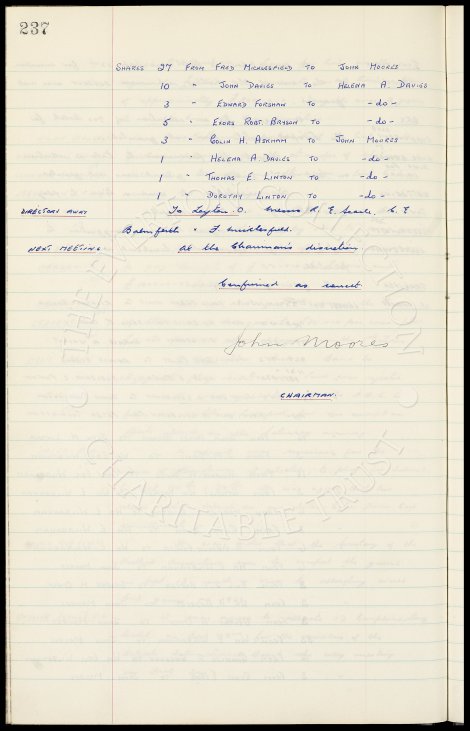 237
SHARES 27 FROM FRED MICKLESFIELD TO JOHN MOORES
10 " JOHN DAVIES TO HELENA A. DAVIES
3 " EDWARD FORSHAW TO -do-
5 " EXORS ROBT. BRYSON TO -do-
3 " COLIN H. ASKHAM TO JOHN MOORES
1 " HELENA A. DAVIES TO -do-
1 " THOMAS E. LINTON TO -do-
1 " DOROTHY LINTON TO -do-
DIRECTORS AWAY To Leyton O. Messrs R. E. Searle, C. E
Balmforth & F. Micklesfield.
NEXT MEETING At the Chairman's discretion
Confirmed as correct
John Moores
CHAIRMAN.
THE EVERTON COLLECTION
CHARITABLE TRUST